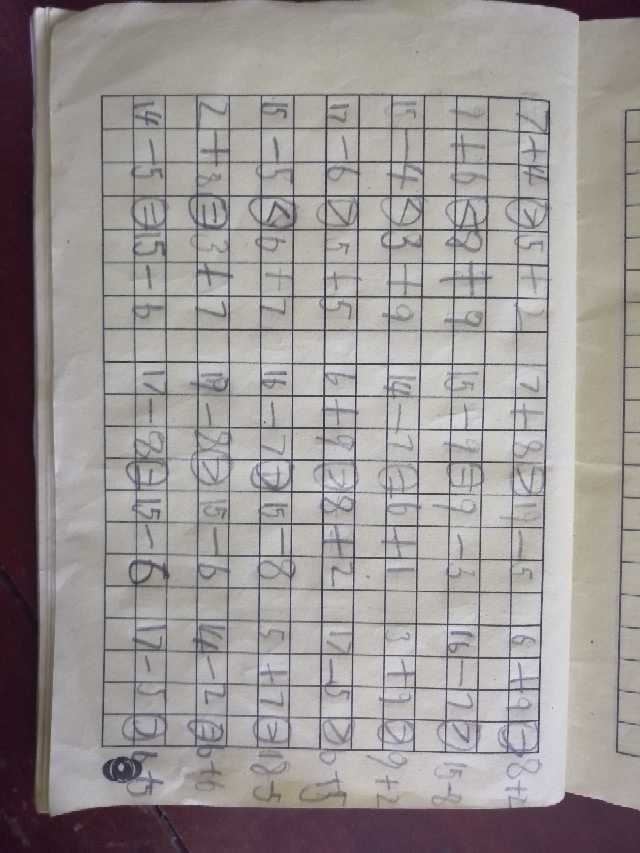 7+4>5+2 7+8>19-5 6+9>8+2
7+6<8+9 15-9=9-3 16-7>15-8
15-4<3+9 14-7=6+1 3+9>9+2
17-6>5+5 6+9>8+2 17-5>6+5
15-5<6+7 16-7>15-8 5+7 18-5
2+8=3+7 19-8>15-6 14-2=6+6
14-5=15-6 17-8=15-6 17-5>6+5